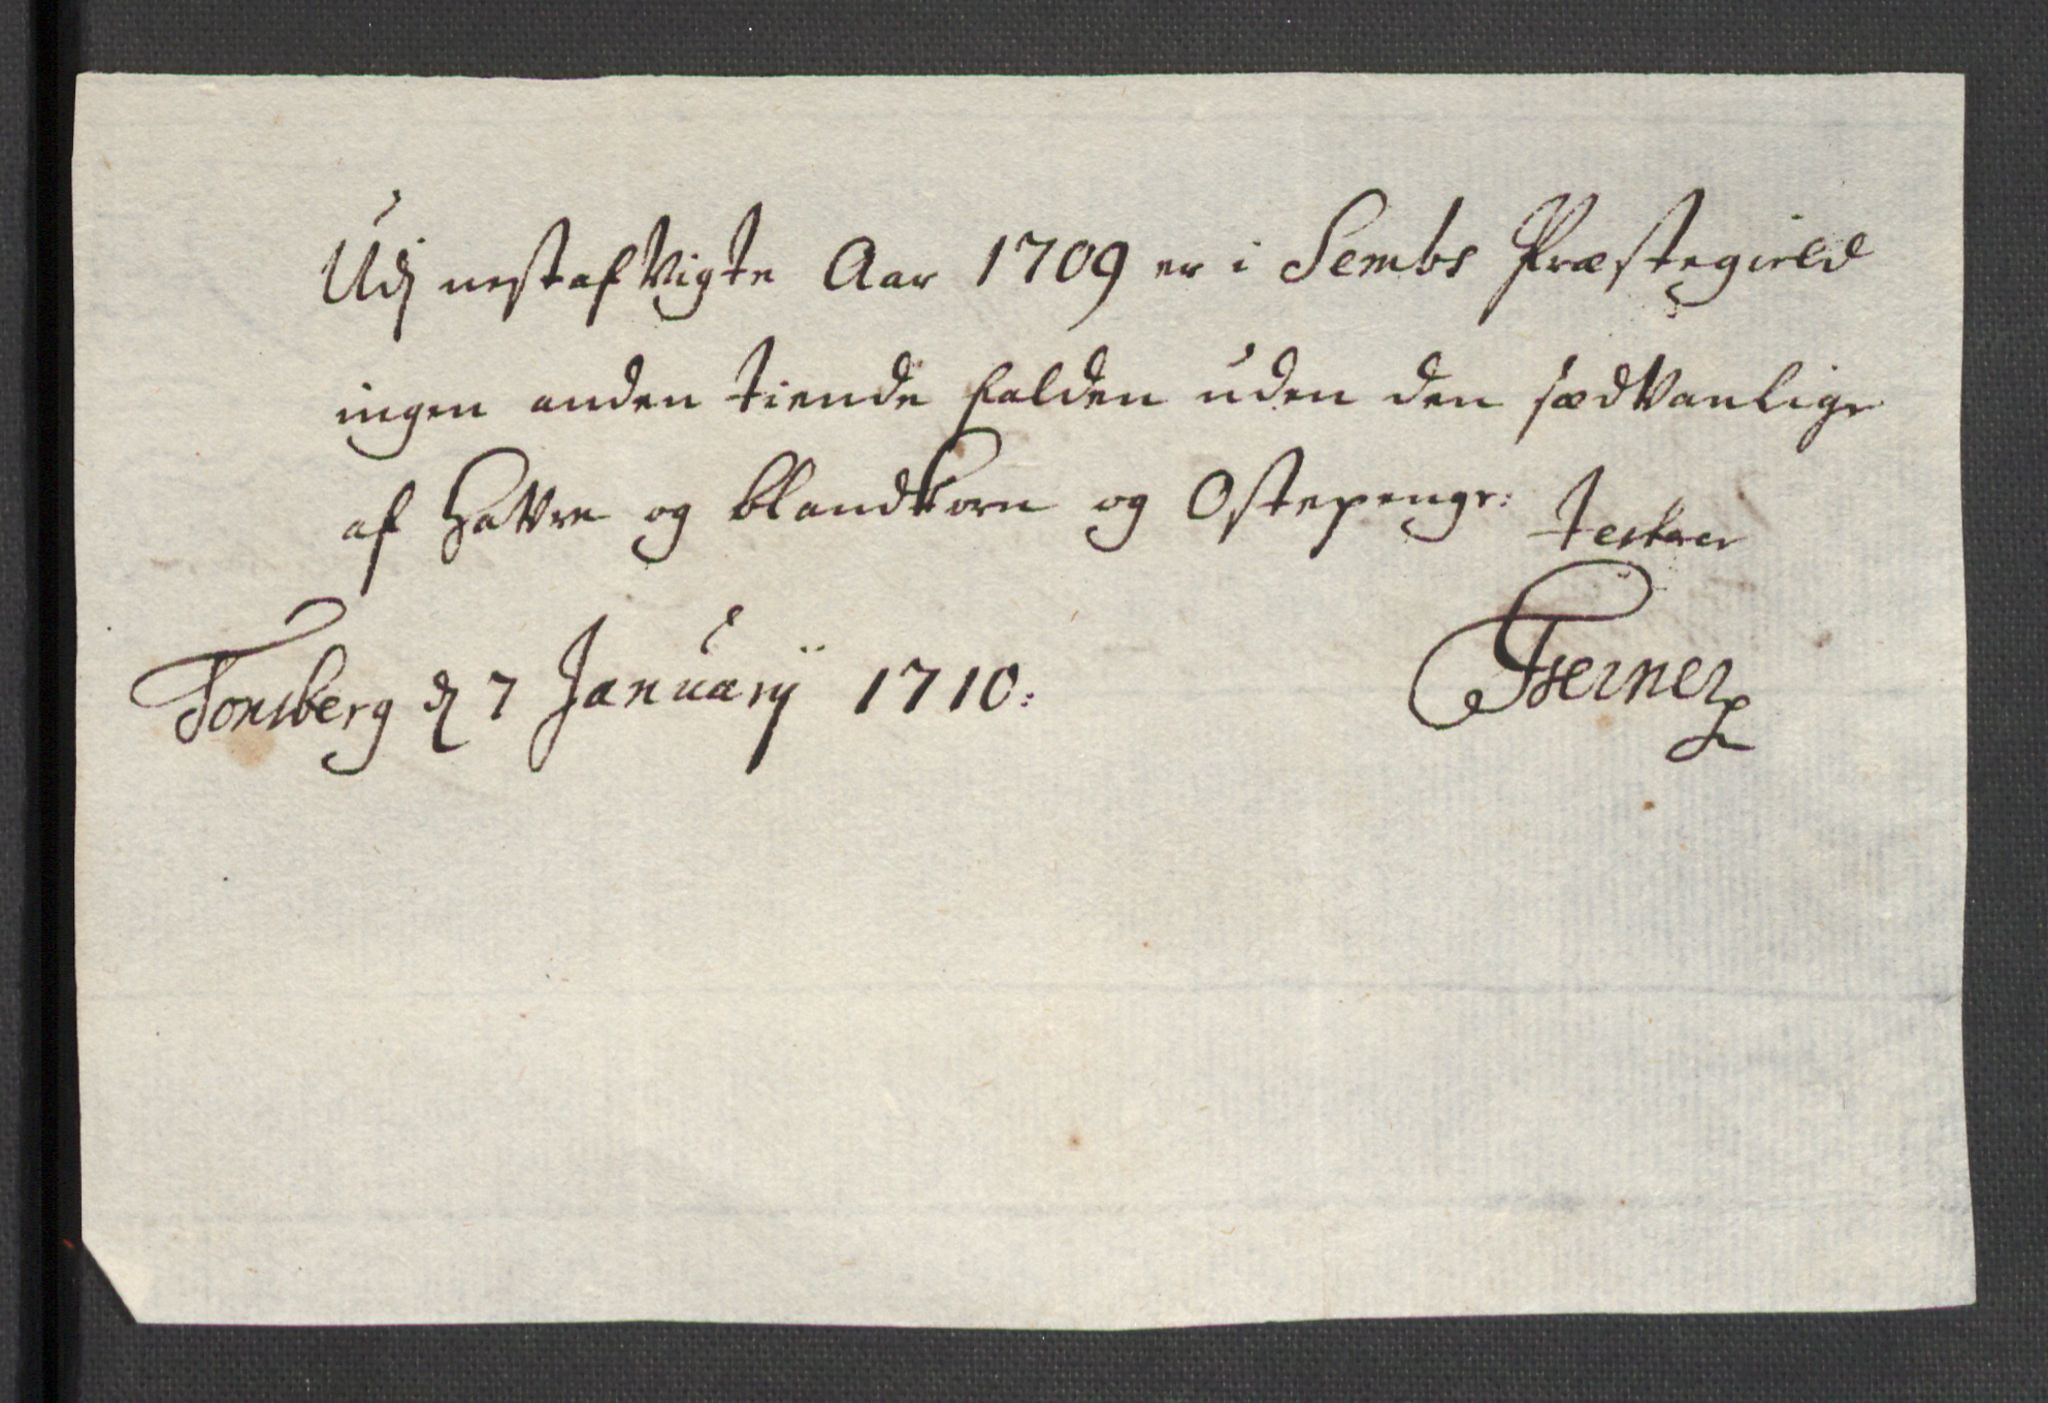 Udj nestafvigte Aar 1709 er i Sembs Præstegield
ingen anden tiende falden uden den sædvanlige
af Havre og blandkorn og Ostepenge: testerer
Tonsberg d 7 Januarij 1710: